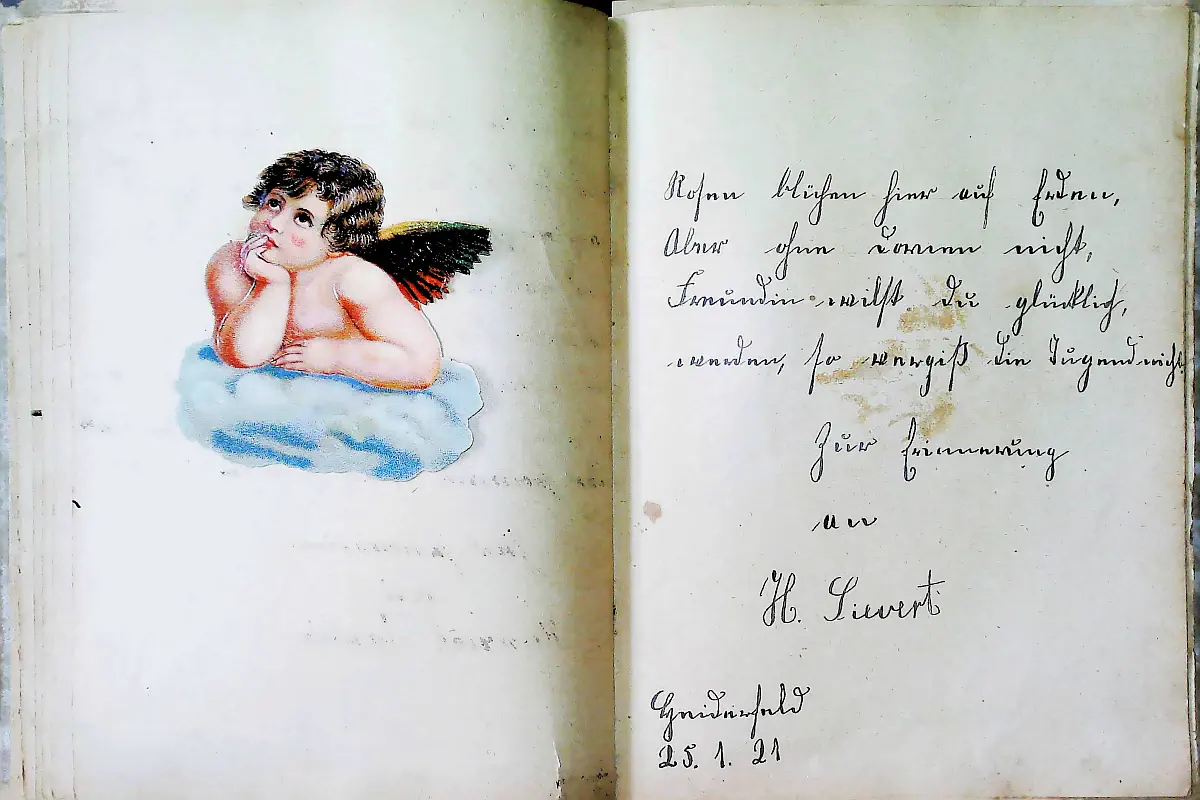 Rosen blühen hier auf Erden,
Aber ohne Dornen nicht,
Freundin wilst du glücklich,
werden, so vergiß die Jugend nicht
Zur Erinnerung
an
H. Sievert
Heiderfeld
25. 1. 21